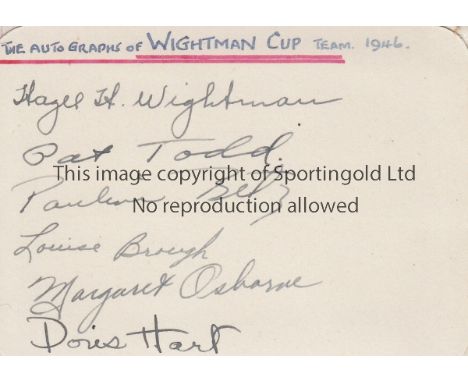 THE AUTOGRAPHS OF WIGHTMAN CUP TEAM. 1946.
Hazel H. Wightman
Pat Todd.
This image copyright of Sportingold Ltd
Pauline Betz
No reproduction allowed
Louise Brough
Margaret Osborne
Doris Hart